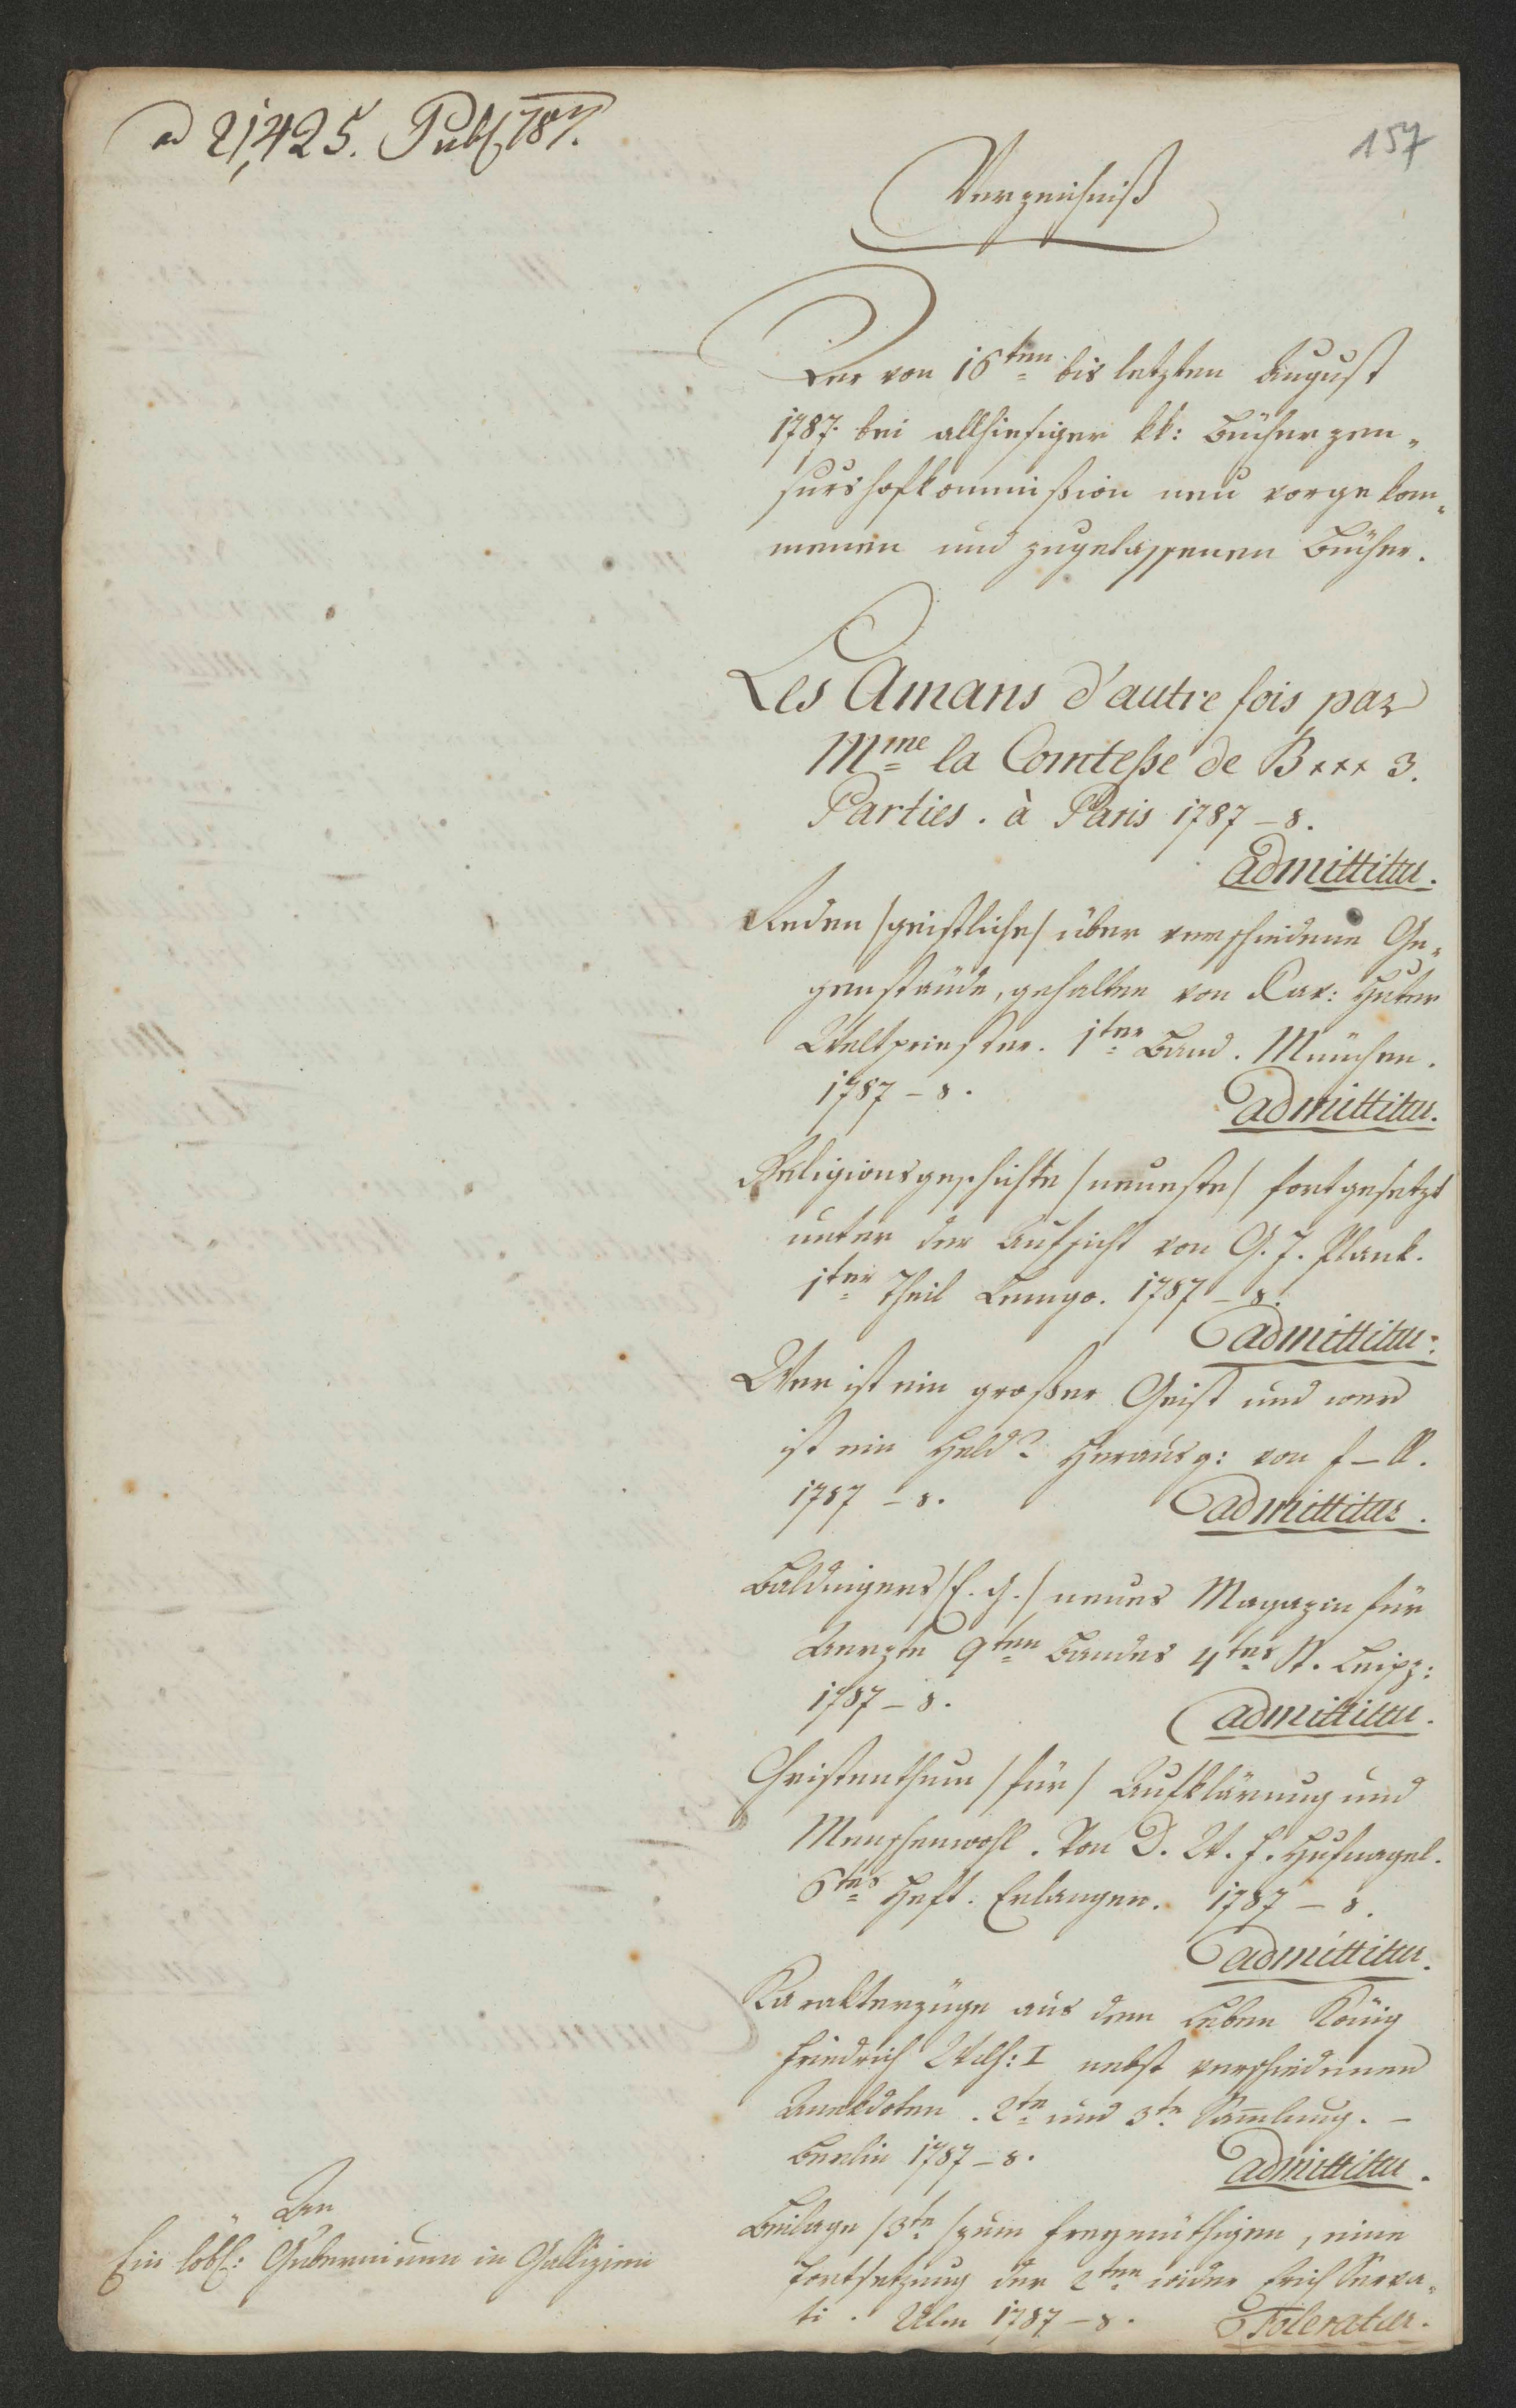 ad 21,425. Publ 787.
157
Verzeichniß
Der von 16ten bis letzten August
1787. bei allhiesiger kk: Bücherzen„
surshofkommißion neu vorgekom„
menen und zugelassenen Bücher.
Les Amans d'autre fois par
Mme la Comteße de B××× 3.
Parties. à Paris 1787 – 8.
admittitur.
Reden /geistliche/ über verschiedene Ge„
genstände, gehalten von Xav: Huter
Weltpriester. 1ter Band. München.
1787 – 8.
admittitur.
Religionsgeschichte /neueste/ fortgesetzt
unter der Aufsicht von G. J. Plank.
1ter Theil Lemgo. 1787 – 8.
admittitur.
Wer ist ein großer Geist und wer
ist ein Held? Herausg: von f – R.
1787 – 8.
admittitur.
Baldingers /E. G./ neues Magazin für
Aerzte 9ten Bandes 4tes St. Leipz:
1787 – 8.
admittitur.
Christenthum /für/ Aufklärung und
Menschenwohl. Von D. W. F. Hufnagel.
6tes Heft. Erlangen. 1787 – 8.
admittitur.
Karakterzüge aus dem Leben König
Friedrich Wilh: I nebst verschiedenen
Anekdoten. 2te und 3te Sammlung. –
Berlin 1787 – 8.
admittitur.
Beilage /3te/ zum Freymüthigen, eine
Fortsetzung der 2ten wider Erich Serva„
ti. Ulm 1787 – 8. Toleratur.
An
Ein löbl: Gubernium in Gallizien